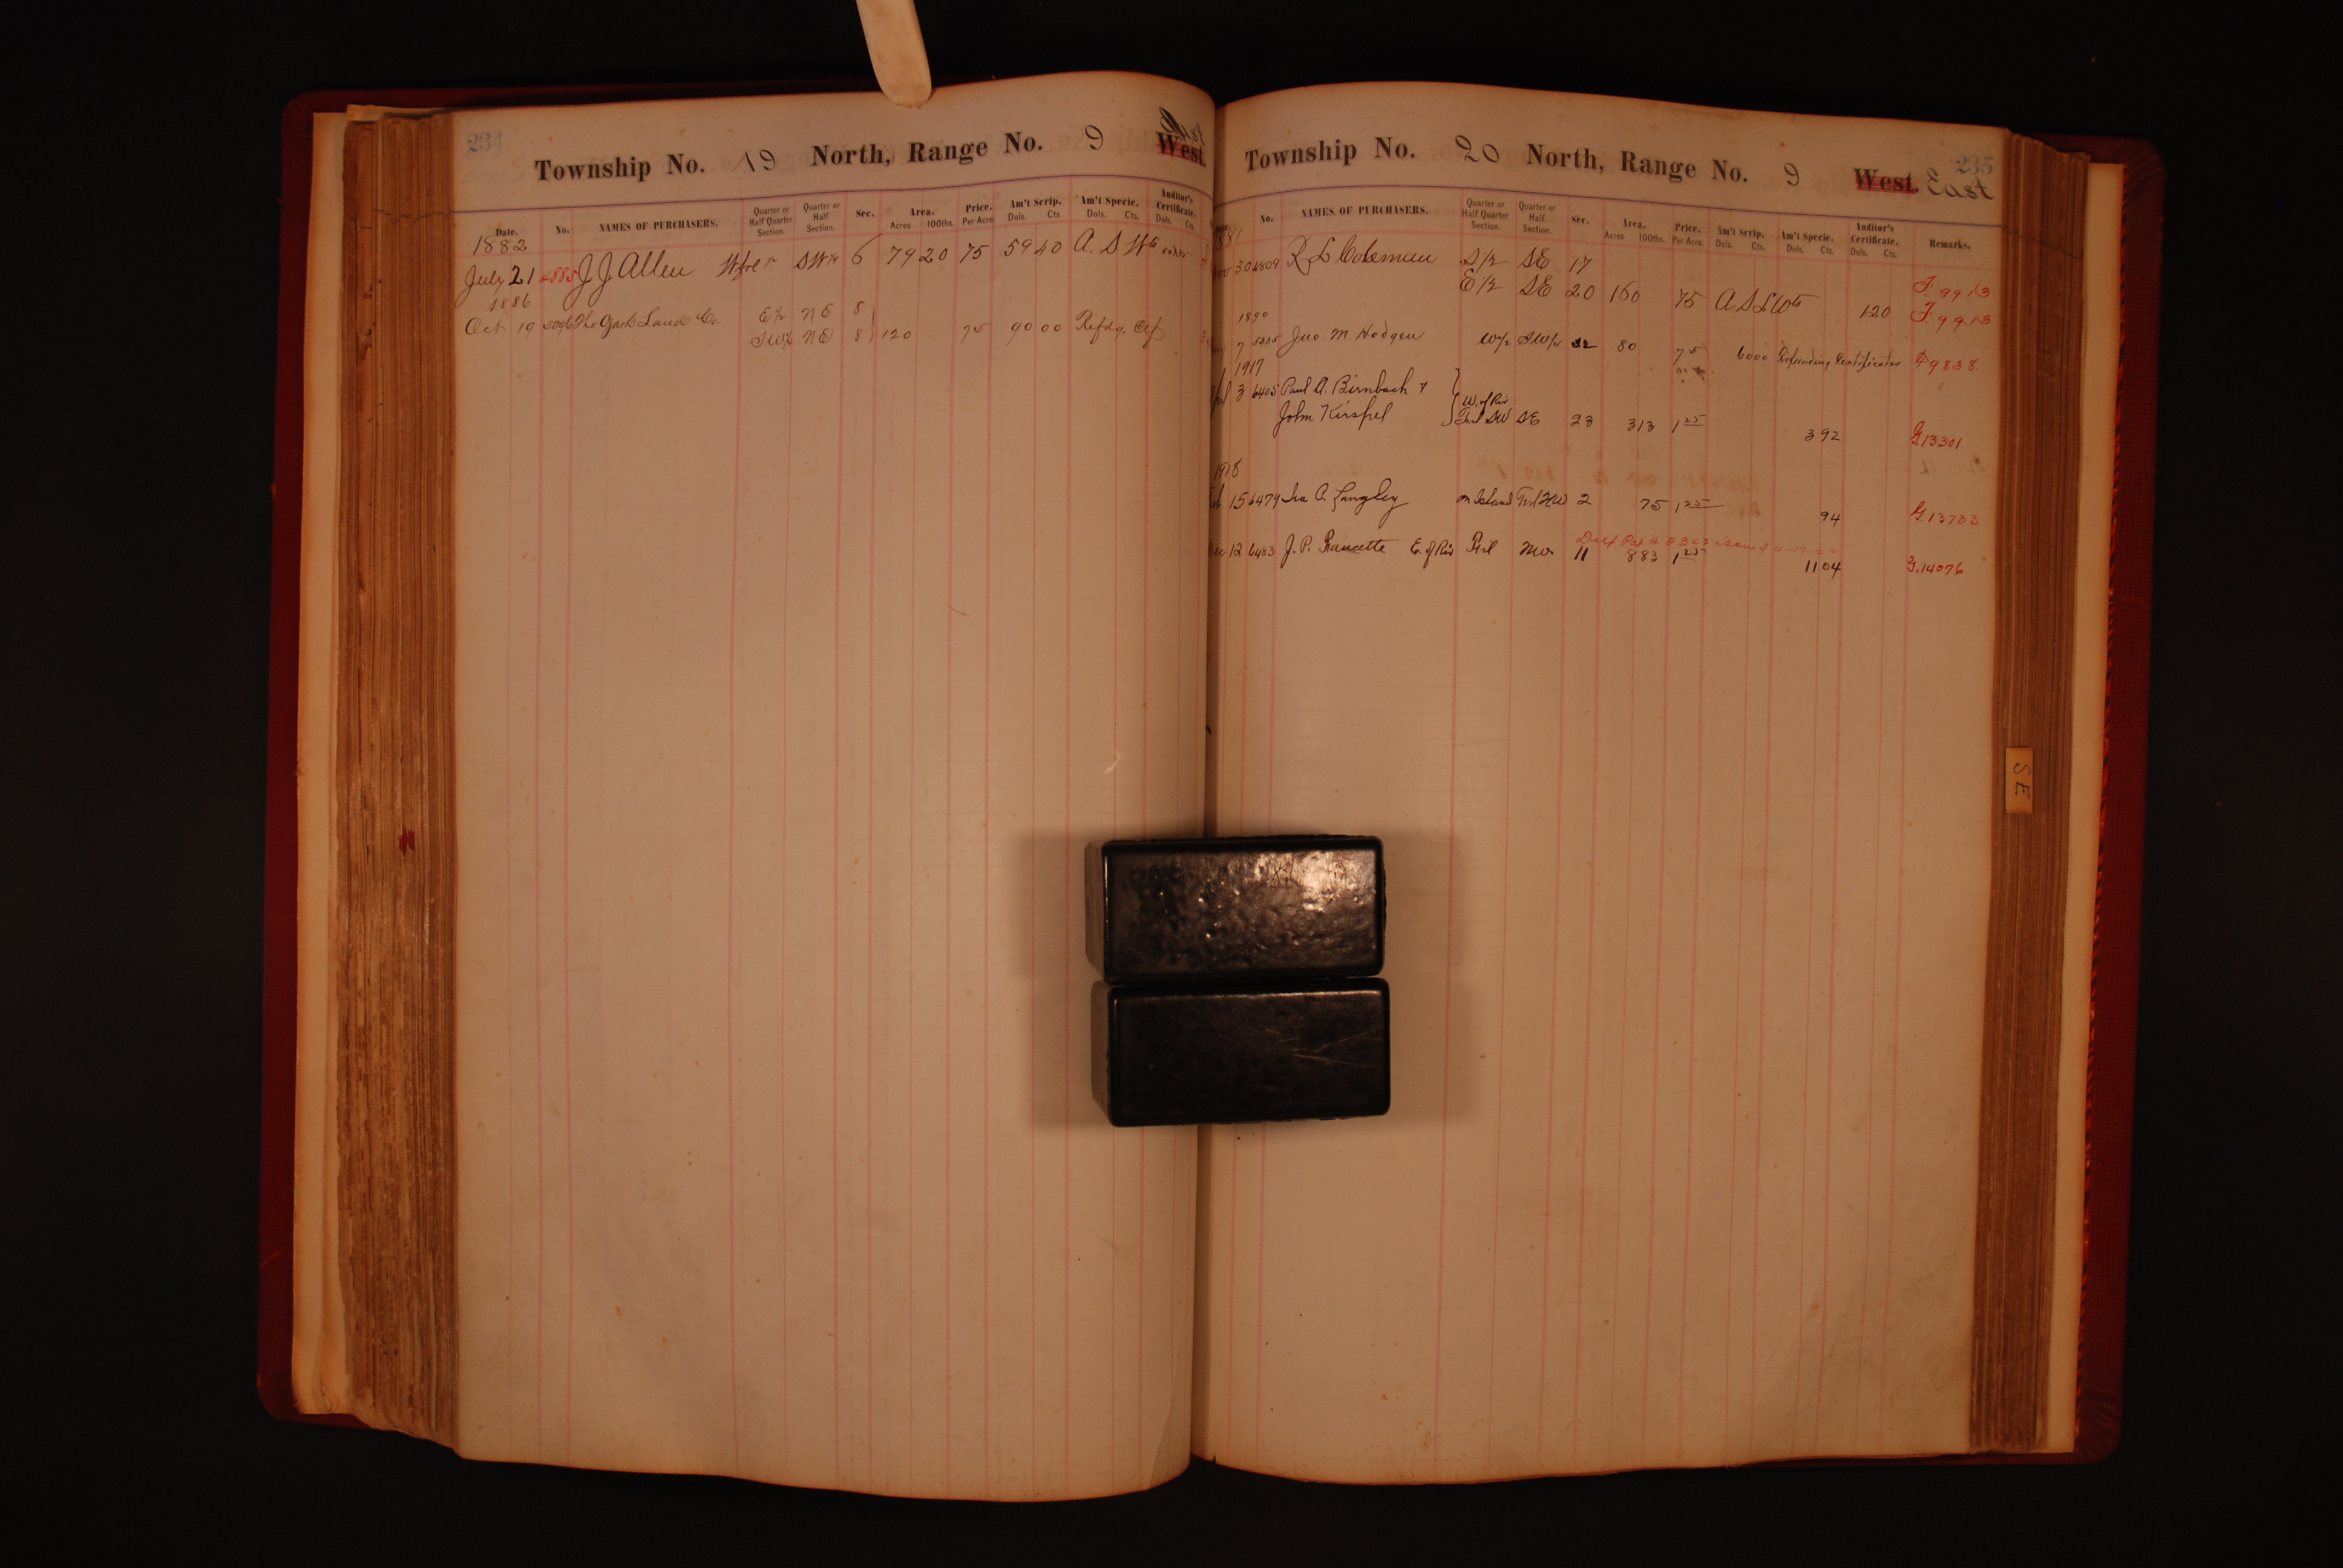 234
Township No. 19 North, Range No. 9 West. East
Date. No. NAMES OF PURCHASERS. Quarter or Half Quarter Section. Quarter or Half Section. Sec. Area. Acres 100ths. Price. Per Acre. Am't Scrip. Dols. Cts Am't Specie. Dols. Cts. Auditor's Certificate. Dols. Cts.
1882
July 21 4885 J J Allen SW 6 79 20 75 59 40 A. S
1886
Oct 19 5096 The Ozark Land Co. E½ NE 8
SW¼ NE 8 120 75 90 00 Refdg. Ctf
235
Township No. 20 North, Range No. 9 West. East
No. NAMES OF PURCHASERS. Quarter or Half Quarter Section. Quarter or Half Section. Sec. Area. Acres 100ths. Price. Per Acre. Am't Scrip. Dols. Cts. Am't Specie. Dols. Cts. Auditor's Certificate. Dols. Cts. Remarks.
1881
30 4809 R L Coleman S½ SE 17 F. 9913
E½ SE 20 160 75 A S L Wts 120 F. 9913
1890
7 Jno. M. Hodgen W½ SW¼ 32 80 75 6000 Refunding Certificates 9838
1917
3 6405 Paul A. Birnbach &
John Kirspel W. of Riv Frl SW SE 23 313 1 25 392 G.13301
1918
15 6479 Ira A. Langley on Island Frl NW 2 75 1 25 94 G.13733
12 6483 J. P. Faucette E. of Riv Frl NW 11 883 1 25 1104 G.14076
SE